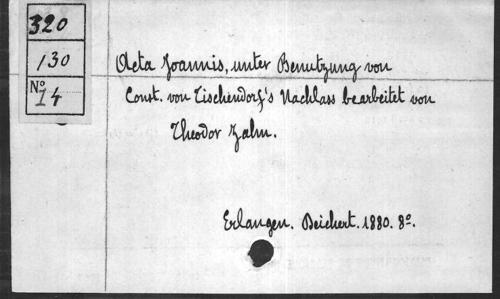 320
130
No
14
Acta Joannis, unter Benutzung von
Const. von Tischendorf's Nachlass bearbeitet von
Theodor Zahn.
Erlangen. Deichert. 1880. 8o.